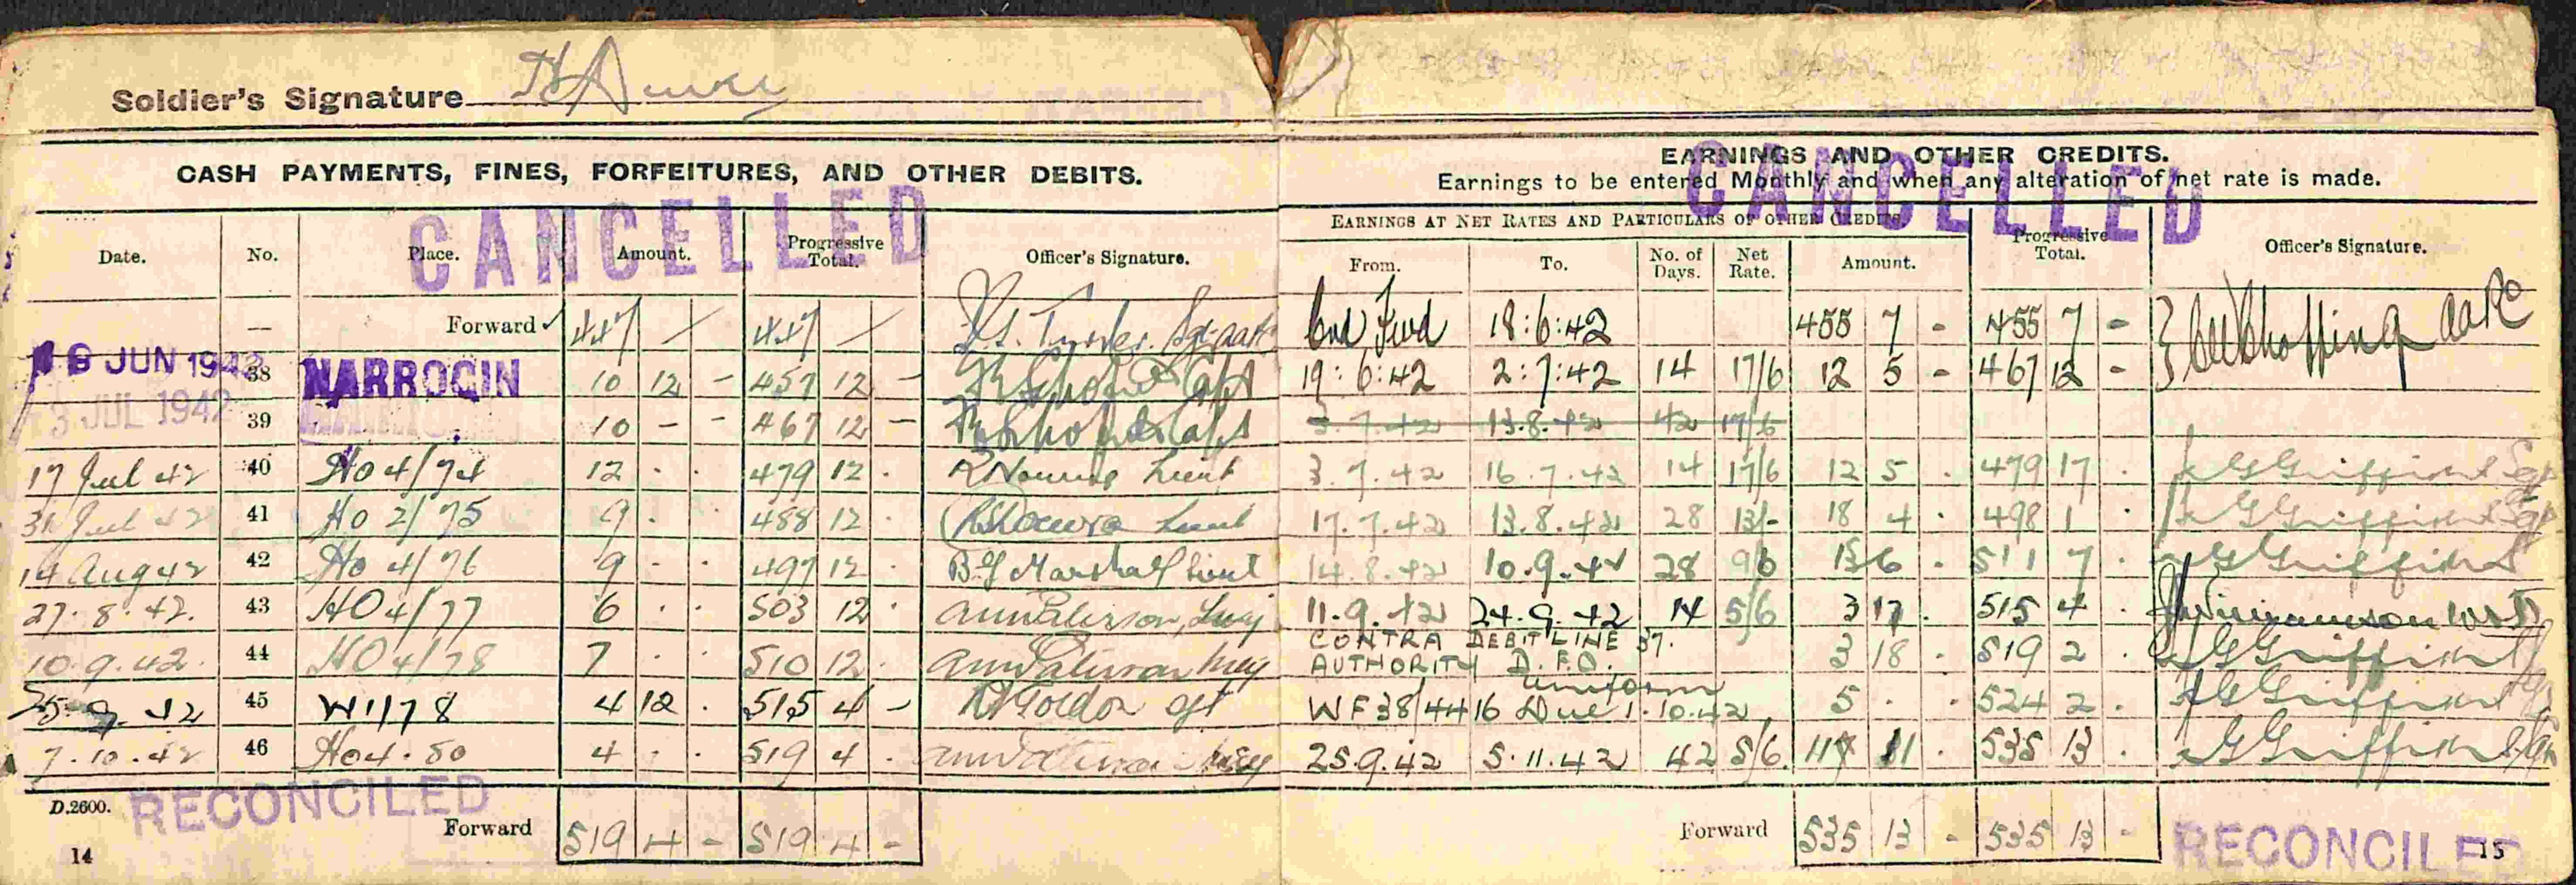 Soldier's Signature
CASH PAYMENTS, FINES, FORFEITURES, AND OTHER DEBITS.
CANCELLED
Date. No. Place. Amount. Progressive Total. Officer's Signature.
— Forward 447 / 447 /
JUN 1942 38 NARROGIN 10 12 - 457 12 -
3 JUL 1942 39 10 - - 467 12 -
17 Jul 42 40 Ho 4/74 12 . . 479 12 . Lieut
31 Jul 42 41 Ho 2/75 9 . . 488 12 . Lieut
14 Aug 42 42 Ho 4/76 9 . . 497 12 . B.G Marshall Lieut
27.8.42. 43 HO 4/77 6 . . 503 12 .
10.9.42. 44 HO 4/78 7 . . 510 12 .
25.9.42 45 W1/78 4 12 . 515 4 -
7.10.42 46 Ho4.80 4 . . 519 4 .
D.2600. RECONCILED
Forward 519 4 - 519 4 -
14
EARNINGS AND OTHER CREDITS.
Earnings to be entered Monthly and when any alteration of net rate is made.
CANCELLED
EARNINGS AT NET RATES AND PARTICULARS OF OTHER CREDITS.
From. To. No. of Days. Net Rate. Amount. Progressive Total. Officer's Signature.
Fwd 18:6:42 455 7 - 455 7 -
19:6:42 2:7:42 14 17/6 12 5 - 467 12 -
3.7.42 13.8.42 42 17/6
3.7.42 16.7.42 14 17/6 12 5 . 479 17 . G Griffiths Sgt
17.7.42 13.8.42 28 13/- 18 4 . 498 1 . G Griffiths Sgt
14.8.42 10.9.42 28 9/6 13 6 . 511 7 . G Griffiths
11.9.42 24.9.42 14 5/6 3 17 . 515 4 .
CONTRA DEBIT LINE 37.
AUTHORITY D.F.O. 3 18 . 519 2 . G Griffiths
uniform
WF38/4416 Due 1.10.42 5 . . 524 2 . G Griffiths
25.9.42 5.11.42 42 5/6 11 11 . 535 13 . G Griffiths
Forward 535 13 - 535 13 -
RECONCILED
15